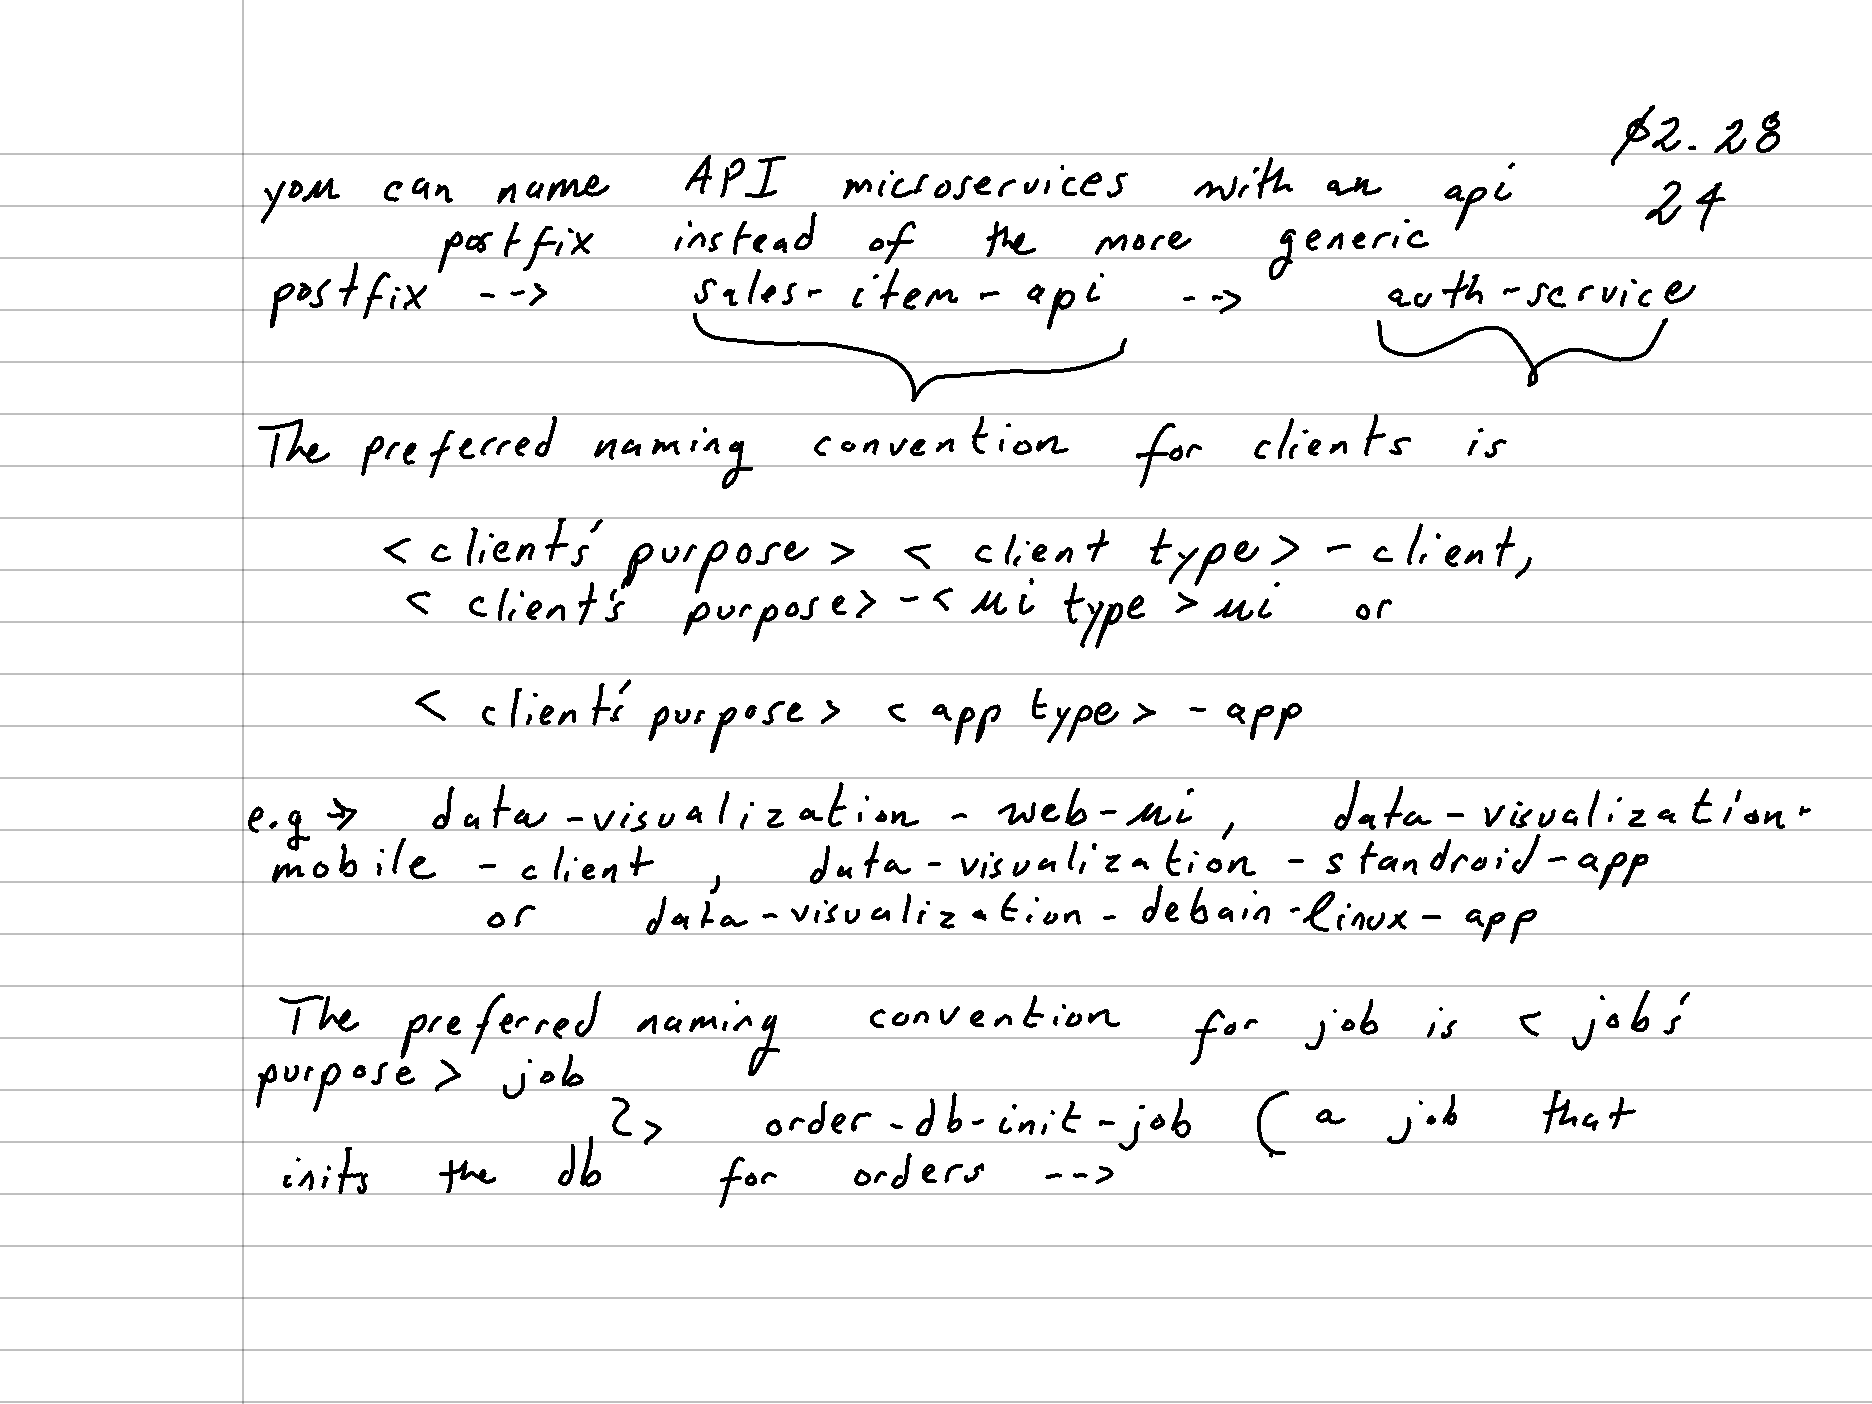 02.28
24
you can name API microservices with an api
postfix instead of the more generic
postfix --> sales-item-api --> auth-service
The preferred naming convention for clients is
<client's purpose> <client type>-client,
<client's purpose>-<ui type>ui or
<client's purpose> <app type>-app
e.g → data-visualization-web-ui, data-visualization-
mobile-client, data-visualization-standroid-app
or data-visualization-debain-linux-app
The preferred naming convention for job is <job's
purpose> job
↳ order-db-init-job (a job that
inits the db for orders -->